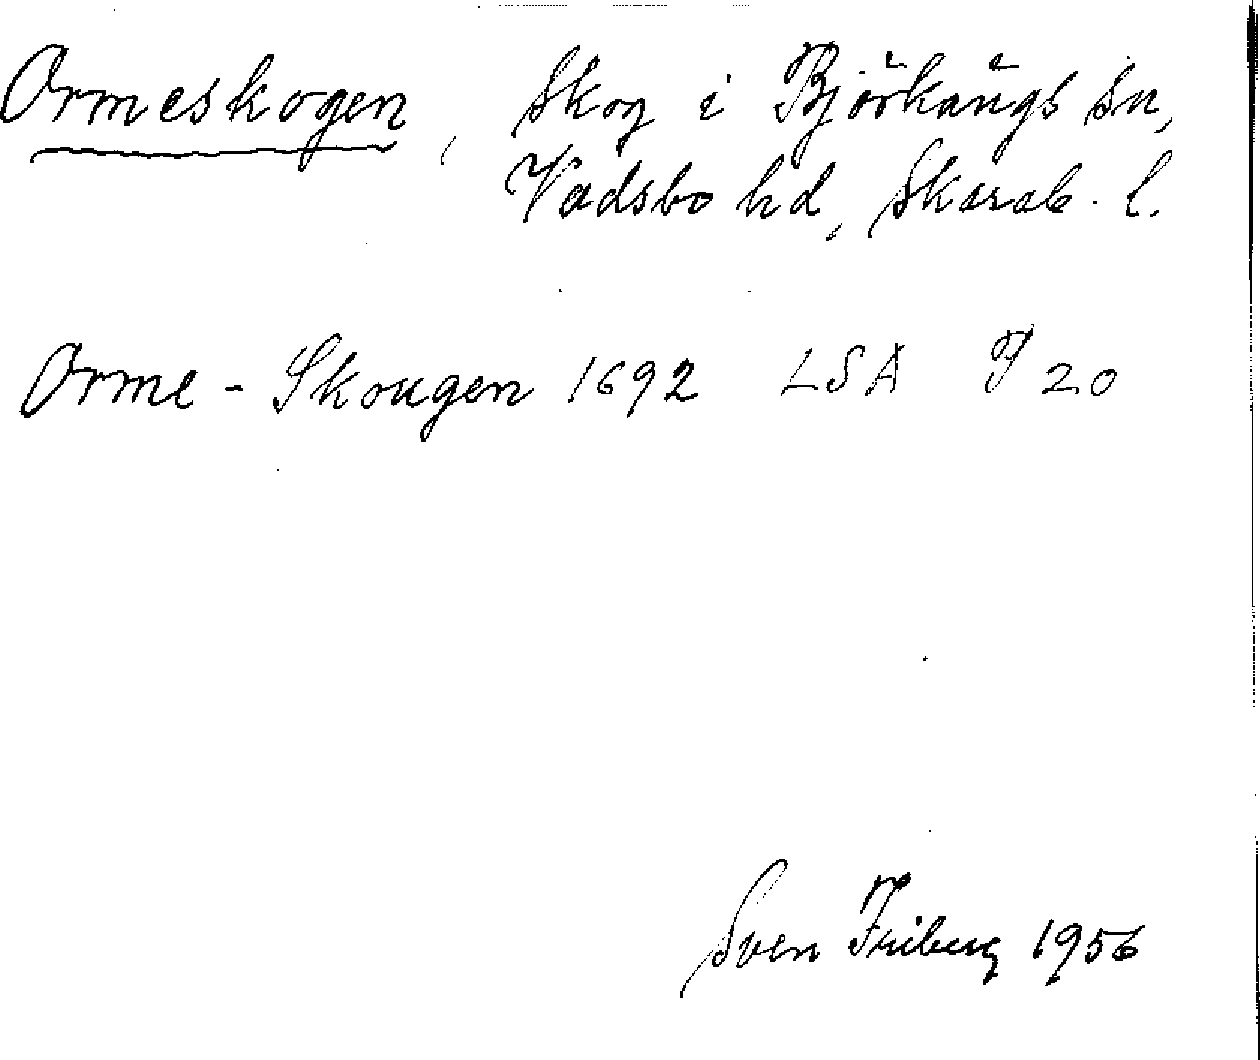 Ormeskogen, Skog i Björkängs sn,
Vadsbo hd, Skarab. l.
Orme-Skougen 1692 LSA P 20
Sven Friberg 1956